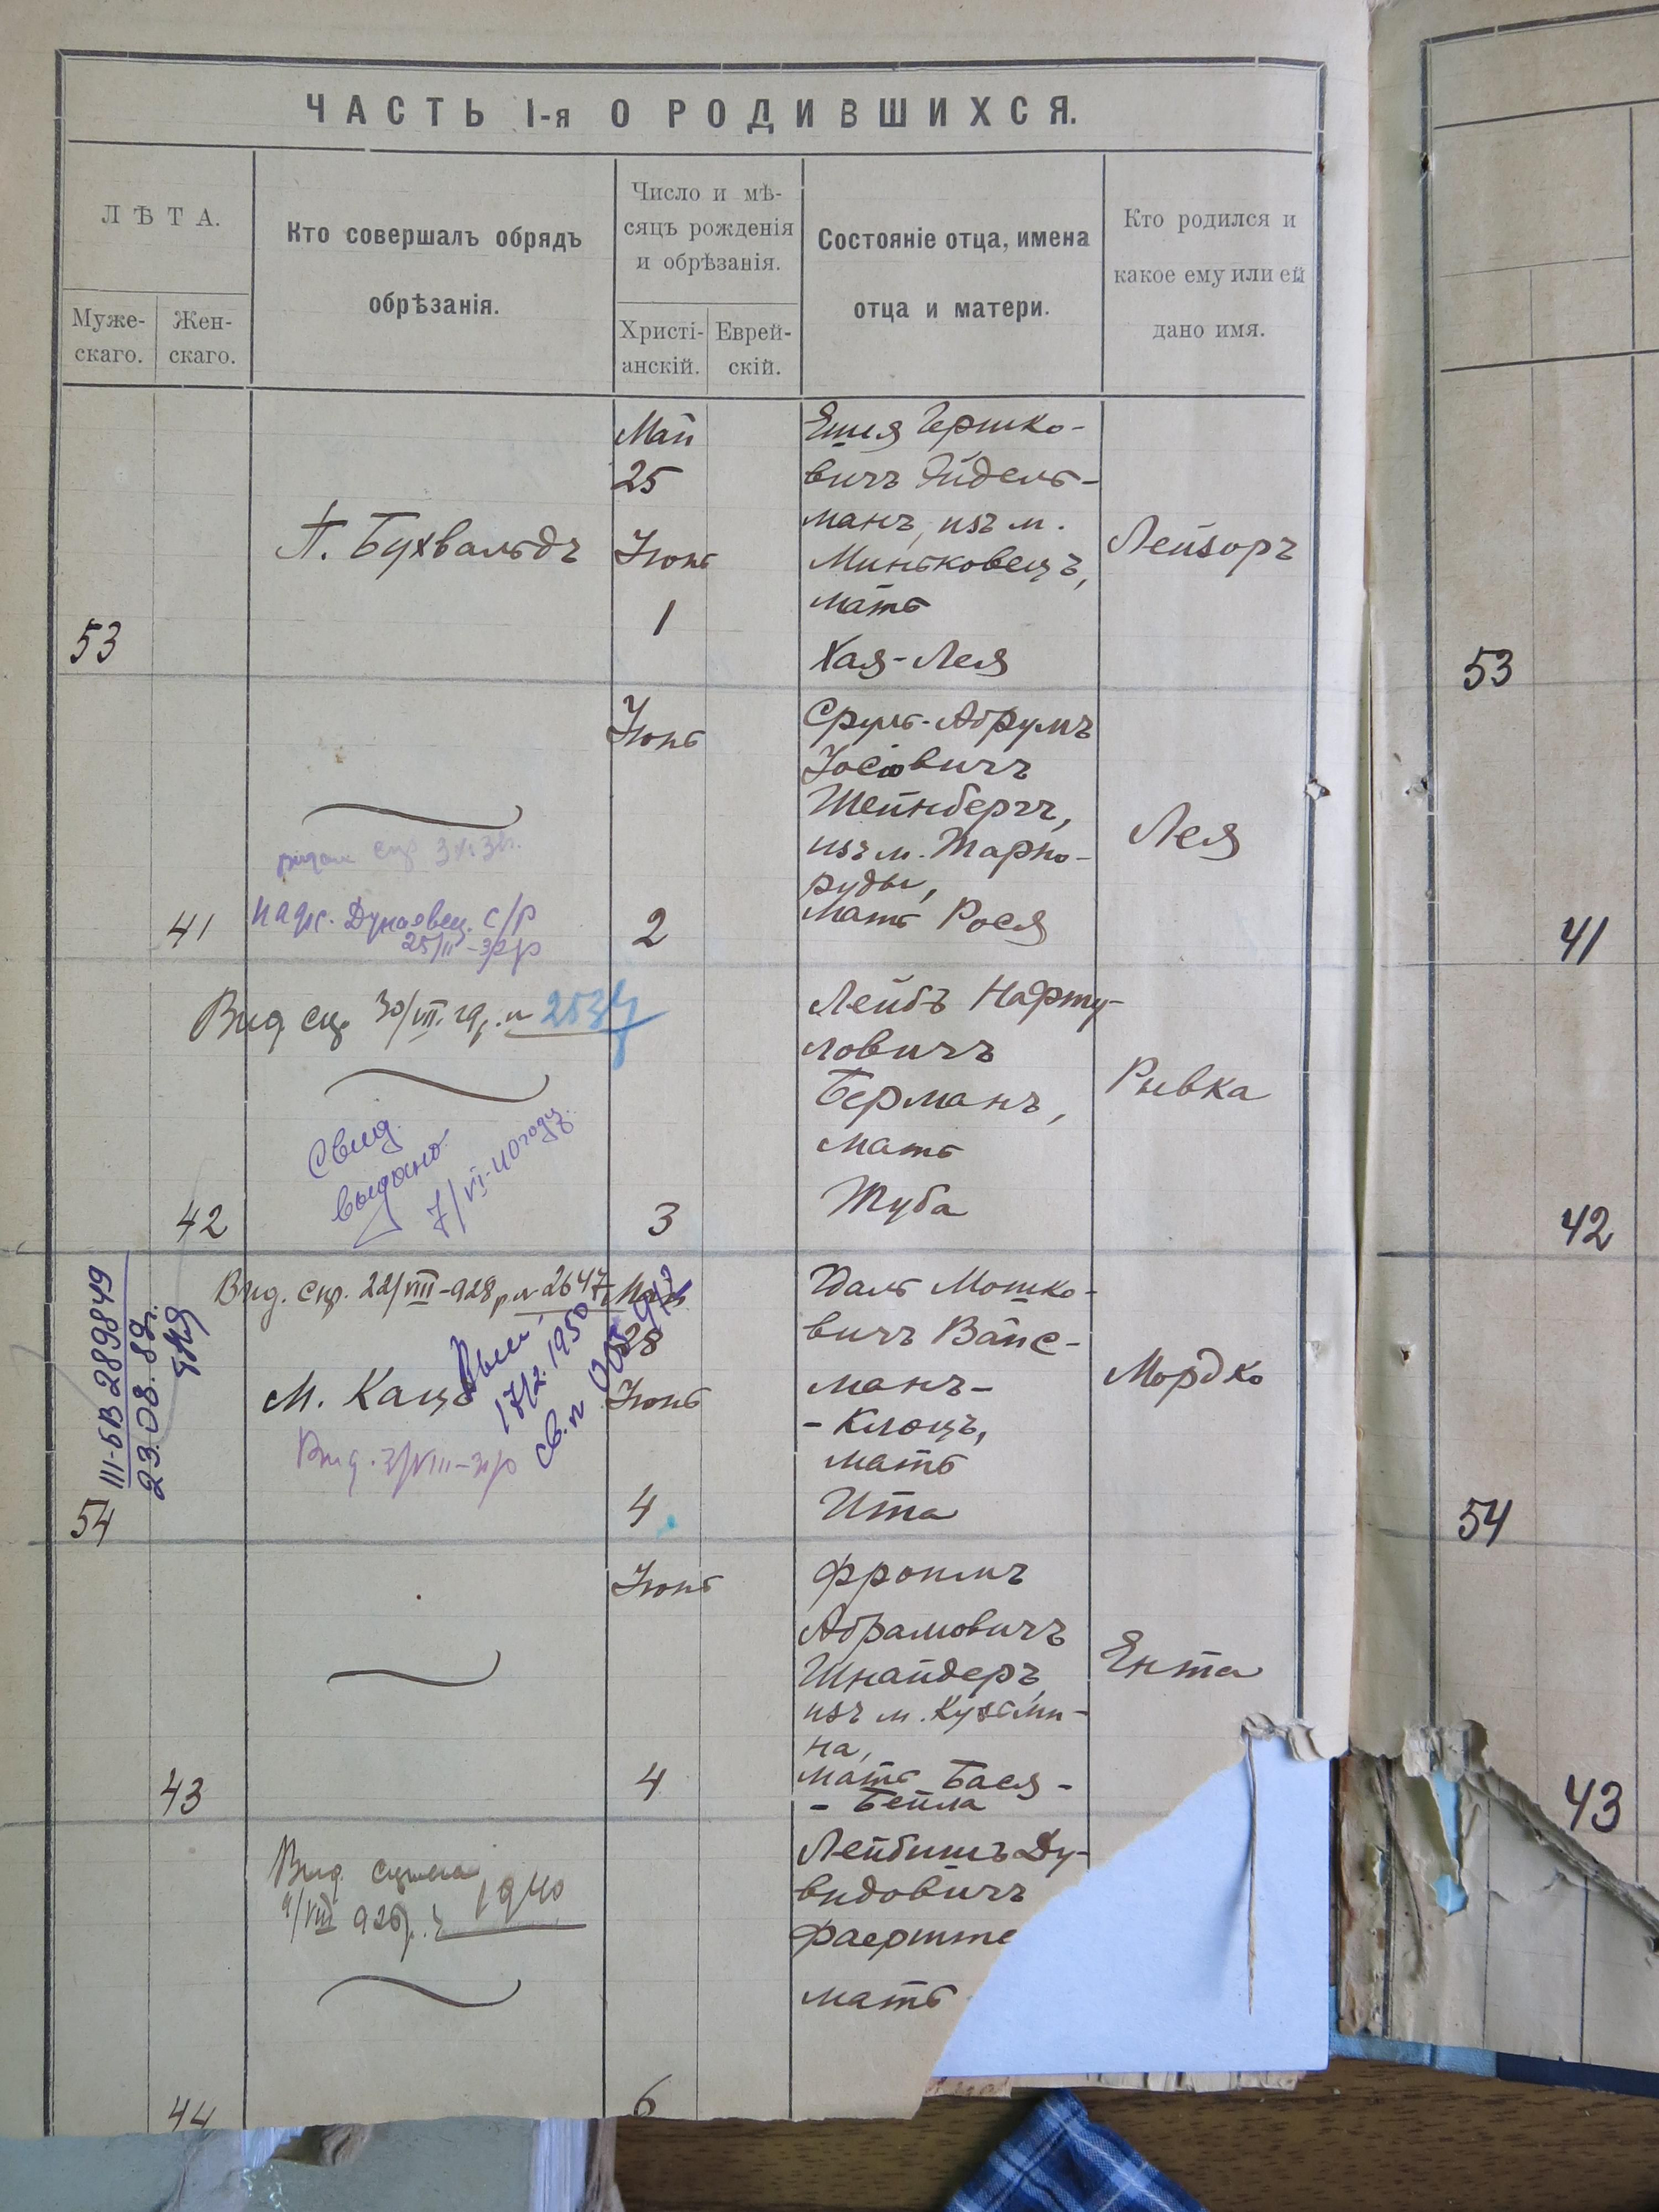 ЧАСТЬ I-я О РОДИВШИХСЯ.
ЛѢТА.
Муже-
скаго.
Жен-
скаго.
Кто совершалъ обрядъ
обрѣзанія.
Число и мѣ-
сяцъ рожденія
и обрѣзанія.
Христі-
анскій.
Еврей-
скій.
Состояніе отца, имена
отца и матери.
Кто родился и
какое ему или ей
дано имя.
53
П. Бухвальдъ
Май
25
Іюнь
1
Ешя Гершко-
вичъ Эйдель-
манъ, изъ м.
Миньковецъ,
мать
Хая-Лея
Лейзоръ
53
41
Дунаевец. с/р
Іюнь
2
Сруль-Абрумъ
Іосіовичъ
Штейнбергъ,
изъ м. Тарно-
руды,
мать Рося
Лея
41
42
Вид. спр. 30/VII. 29 р. №
Свид.
выдано
7/VI-40 году.
3
Лейбъ Нафту-
ловичъ
Берманъ,
мать
Туба
Ривка
42
III-БВ 289849
23.08.89г.
54
Вид. спр. 22/VIII-928 р. № 2647
М. Кацъ
17/2. 1950
св. №
Вид. 3/VIII-31р
Май
28
Іюнь
4
Идаль Мошко-
вичъ Вайс-
манъ-
-Клоцъ,
мать
Ита
Мордко
54
43
Іюнь
4
Фроимъ
Абрамовичъ
Шнайдеръ,
изъ м. Кузьми-
на,
мать Бася-
-Бейла
Ента
43
44
Вид.
/VIII 926р. 1940
6
Лейбишъ Ду-
видовичъ
Фаерште
мать